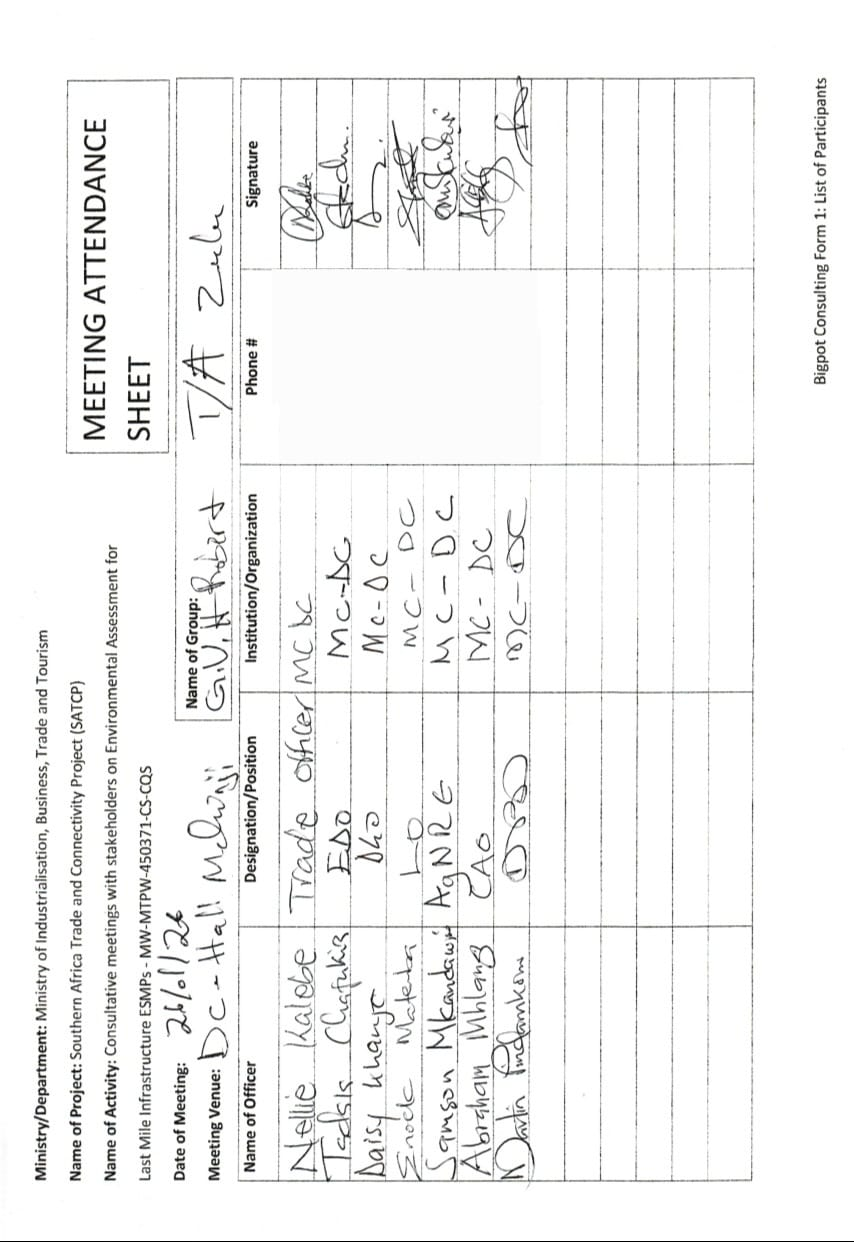 Ministry/Department: Ministry of Industrialisation, Business, Trade and Tourism
Name of Project: Southern Africa Trade and Connectivity Project (SATCP)
Name of Activity: Consultative meetings with stakeholders on Environmental Assessment for
Last Mile Infrastructure ESMPs - MW-MTPW-450371-CS-CQS
MEETING ATTENDANCE
SHEET
Date of Meeting: 26/01/26
Meeting Venue: DC - Hall Mchinji
Name of Group:
G.V.H Robert T/A Zulu
Name of Officer Designation/Position Institution/Organization Phone # Signature
Nellie Kalebe Trade officer MC DC
EDO MC-DC
Daisy Khanje DLO MC-DC
Enock LO MC-DC
Samson Mkandawire AgNRE MC-DC
Abraham Mhlang CAO MC-DC
Martin MC-DC
Bigpot Consulting Form 1: List of Participants